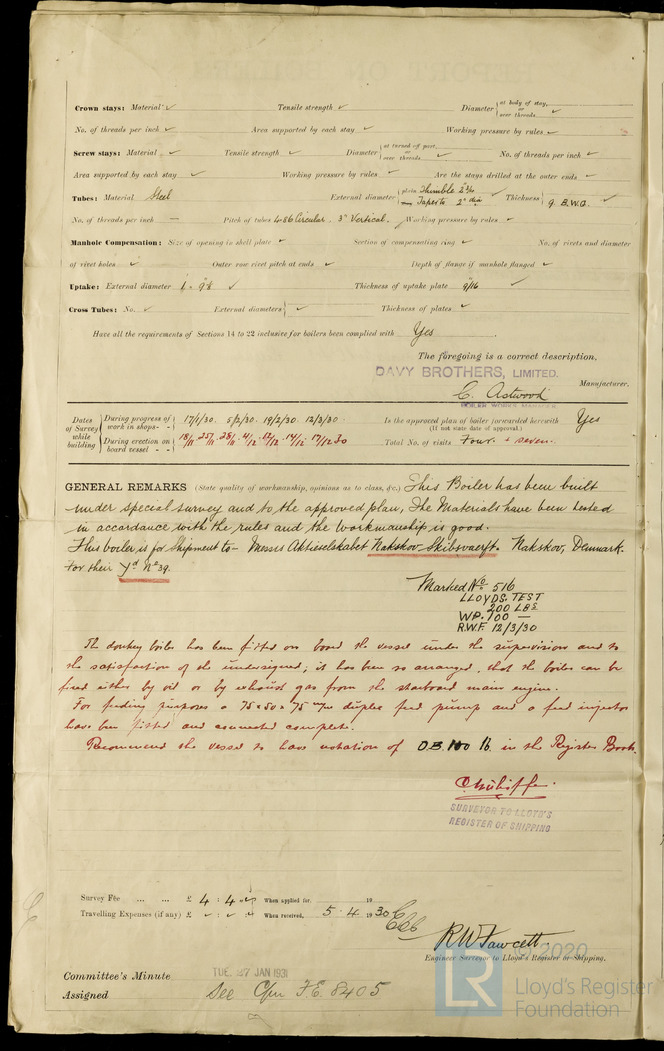 Crown stays: Material ✓ Tensile strength ✓ Diameter { at body of stay, or over threads ✓
No. of threads per inch ✓ Area supported by each stay ✓ Working pressure by rules ✓
Screw stays: Material ✓ Tensile strength ✓ Diameter { at turned off part, or over threads ✓ No. of threads per inch ✓
Area supported by each stay ✓ Working pressure by rules ✓ Are the stays drilled at the outer ends ✓
Tubes: Material Steel External diameter { plain Thimble Tapesto 2" dia ✓ Thickness { 9. B.W.G. ✓
No. of threads per inch — Pitch of tubes 4.86 Circular. 3" Vertical. Working pressure by rules ✓
Manhole Compensation: Size of opening in shell plate ✓ Section of compensating ring ✓ No. of rivets and diameter
of rivet holes ✓ Outer row rivet pitch at ends ✓ Depth of flange if manhole flanged ✓
Uptake: External diameter ✓ Thickness of uptake plate 9/16 ✓
Cross Tubes: No. ✓ External diameters { ✓ Thickness of plates ✓
Have all the requirements of Sections 14 to 22 inclusive for boilers been complied with Yes
The foregoing is a correct description,
DAVY BROTHERS, LIMITED.
C. Astwood Manufacturer.
BOILER WORKS MANAGER
Dates of Survey while building { During progress of work in shops - - } 17/1/30. 5/2/30. 19/2/30. 12/3/30. Is the approved plan of boiler forwarded herewith (If not state date of approval.) Yes
{ During erection on board vessel - - - } 18/11 25/11 28/11 4/12 12/12 14/12 17/12 30 Total No. of visits Four. + seven.
GENERAL REMARKS (State quality of workmanship, opinions as to class, &c.) This Boiler has been built
under special survey and to the approved plan, The Materials have been tested
in accordance with the rules and the workmanship is good.
This boiler is for Shipment to- Messrs Aktieselskabet Nakskov. Skibsvaerft. Nakskov, Denmark.
for their Yd No 39.
Marked No 516
LLOYDS. TEST
200 LBS
WP. 100 —
R.W.F. 12/3/30
The donkey boiler has been fitted on board the vessel under the supervision and to
the satisfaction of the undersigned; it has been so arranged, that the boiler can be
fired either by oil or by exhaust gas from the starboard main engine.
For feeding purposes a 75 × 50 × 75 m/m duplex feed pump and a feed injector
have been fitted and connected complete.
Recommend the vessel to have notation of D.B. 100 lb. in the Register Book.
SURVEYOR TO LLOYD'S
REGISTER OF SHIPPING
Survey Fee ... ... £ 4 : 4 When applied for, 19
Travelling Expenses (if any) £ ✓ : ✓ : When received, 5.4.1930
R W Fawcett.
Engineer Surveyor to Lloyd's Register of Shipping.
Committee's Minute TUE. 27 JAN 1931
Assigned See Cpn F.E. 8405
© 2020
LR Lloyd's Register
Foundation